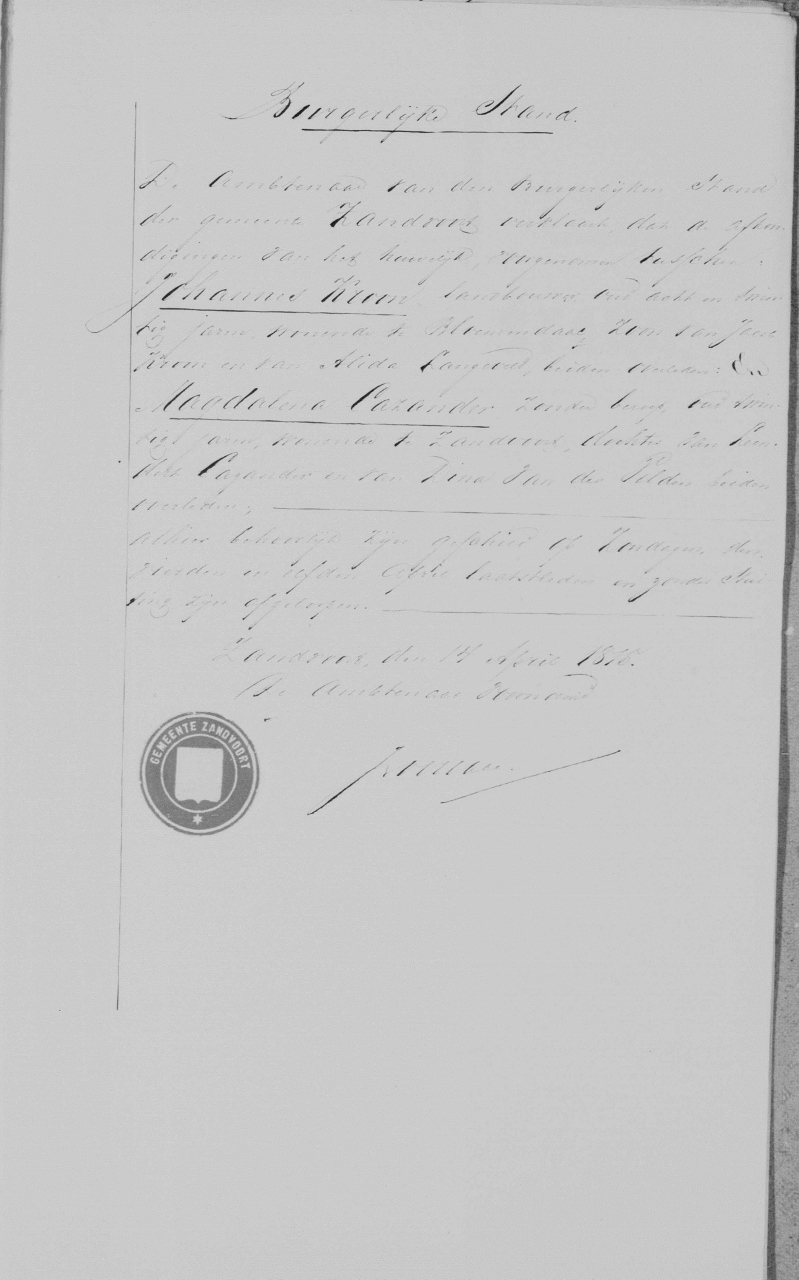 Burgerlijke Stand.
De Ambtenaar van den burgerlijken Stand
der gemeente Zandvoort verklaart dat de afkon-
digingen van het huwelijk, voorgenomen tusschen:
Johannes Kroon, landbouwer, oud acht en twin-
tig jaren, wonende te Bloemendaal, Zoon van
Kroon en van Alida Langeveld, beiden overleden: En
Magdalena Cazander zonder beroep, oud twin-
tig jaren, wonende te Zandvoort, dochter van Leen-
dert Cazander en van Dina van der Velden beiden
overleden;
alhier behoorlijk zijn geschied op Zondagen, den
en elfden April laatstleden en zonder Stui-
ting zijn afgeloopen.
Zandvoort, den April
De Ambtenaar voornoemd
GEMEENTE ZANDVOORT